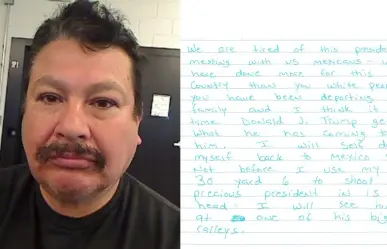 We are tired of this preside
messing with us mexicans - w
have done more for this
Country than you white peo
you have been deporting
family and I think it
time Donald J. Trump ge
What he has coming
him. I will self de
myself back to mexico
Not before I use my
30 yard 6 to shoot
precious president in is
head - I will see
at one of his big
ralleys.